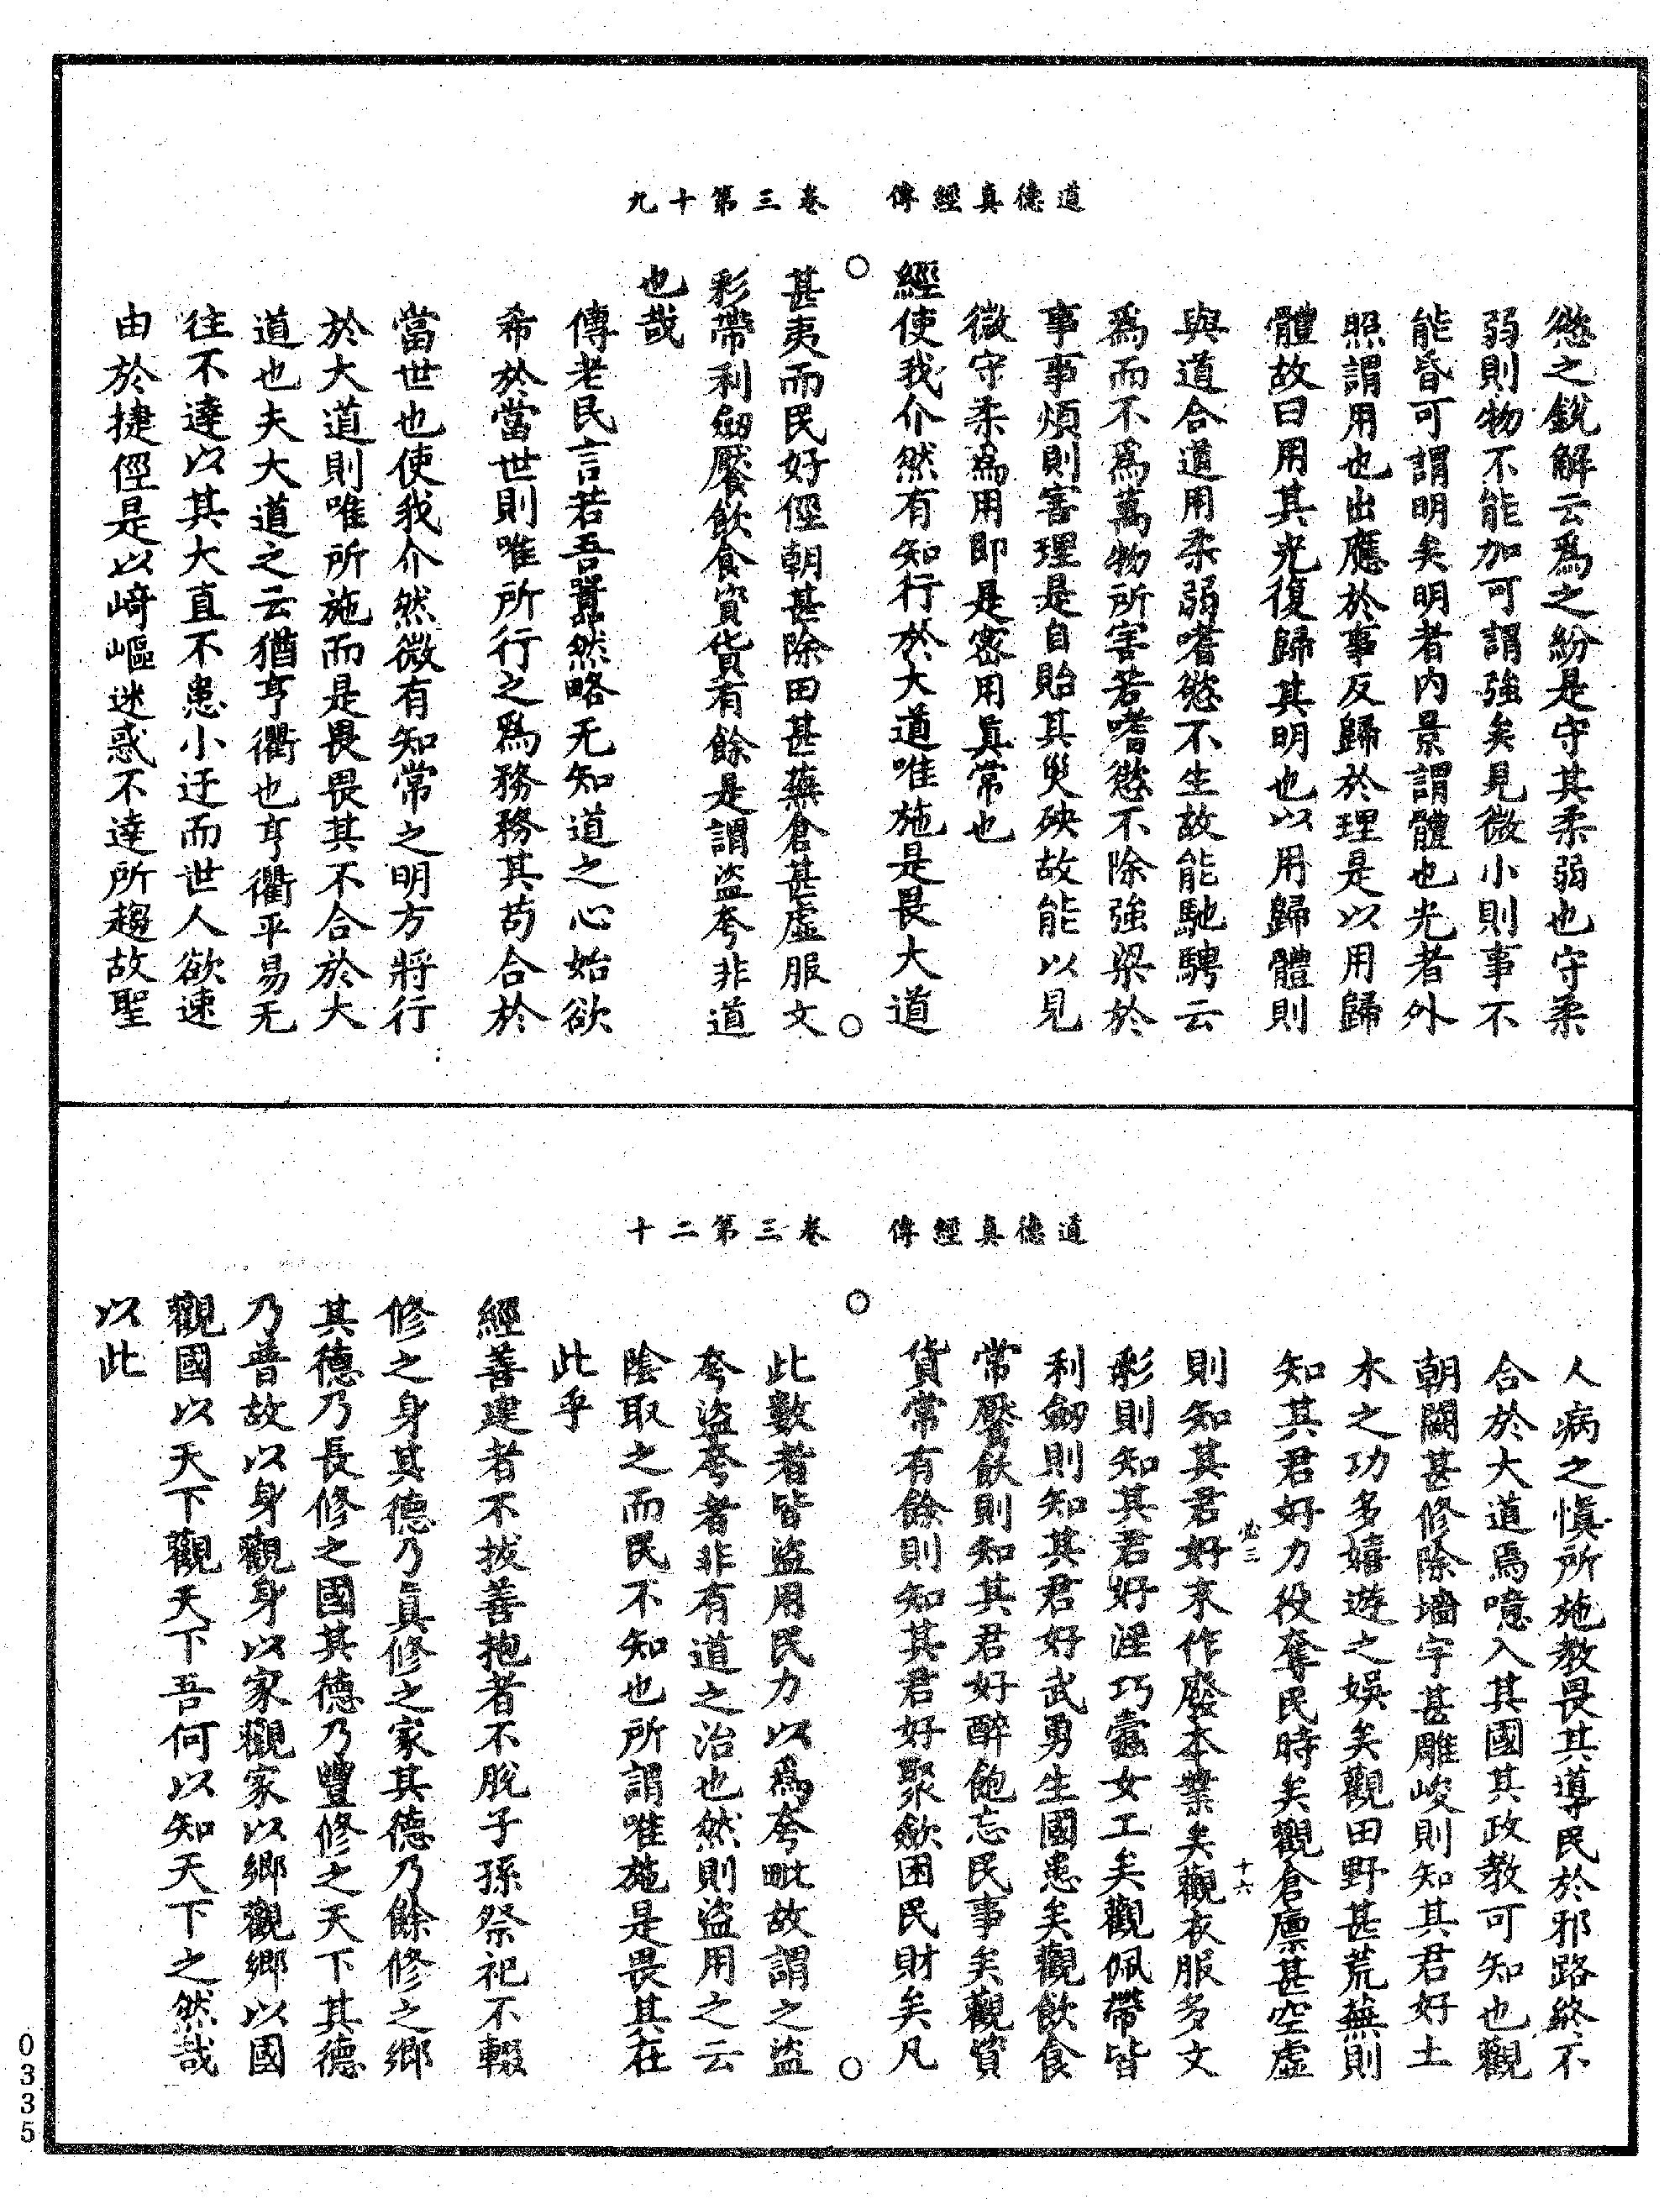 道德真經傳　卷三第十九
慾之銳解云爲之紛是守其柔弱也守柔
弱則物不能加可謂強矣見微小則事不
能昏可謂明矣明者內景謂體也光者外
照謂用也出應於事反歸於理是以用歸
體故曰用其光復歸其明也以用歸體則
與道合道用柔弱嗜慾不生故能馳騁云
爲而不爲萬物所害若嗜慾不除強梁於
事事煩則害理是自貽其災殃故能以見
微守柔爲用即是密用真常也
經使我介然有知行於大道唯施是畏大道
甚夷而民好徑朝甚除田甚蕪倉甚虛服文
彩帶利劒厭飲食資貨有餘是謂盜夸非道
也哉
傳老氏言若吾嚚然略无知道之心始欲
希於當世則唯所行之爲務務其苟合於
當世也使我介然微有知常之明方將行
於大道則唯所施而是畏畏其不合於大
道也夫大道之云猶亨衢也亨衢平易无
往不達以其大直不患小迂而世人欲速
由於捷徑是以崎嶇迷惑不達所趨故聖
道德真經傳　卷三第二十
人病之愼所施教畏其導民於邪路終不
合於大道焉噫入其國其政教可知也觀
朝闕甚修除墻宇甚雕峻則知其君好土
木之功多嬉遊之娛矣觀田野甚荒蕪則
知其君好力役奪民時矣觀倉廩甚空虛
必三　十六
則知其君好末作廢本業矣觀衣服多文
彩則知其君好淫巧蠹女工矣觀佩帶皆
利劒則知其君好武勇生國患矣觀飲食
常饜飫則知其君好醉飽忘民事矣觀資
貨常有餘則知其君好聚歛困民財矣凡
此數者皆盜用民力以爲夸毗故謂之盜
夸盜夸者非有道之治也然則盜用之云
陰取之而民不知也所謂唯施是畏其在
此乎
經善建者不拔善抱者不脫子孫祭祀不輟
修之身其德乃眞修之家其德乃餘修之鄉
其德乃長修之國其德乃豐修之天下其德
乃普故以身觀身以家觀家以鄉觀鄉以國
觀國以天下觀天下吾何以知天下之然哉
以此
0335